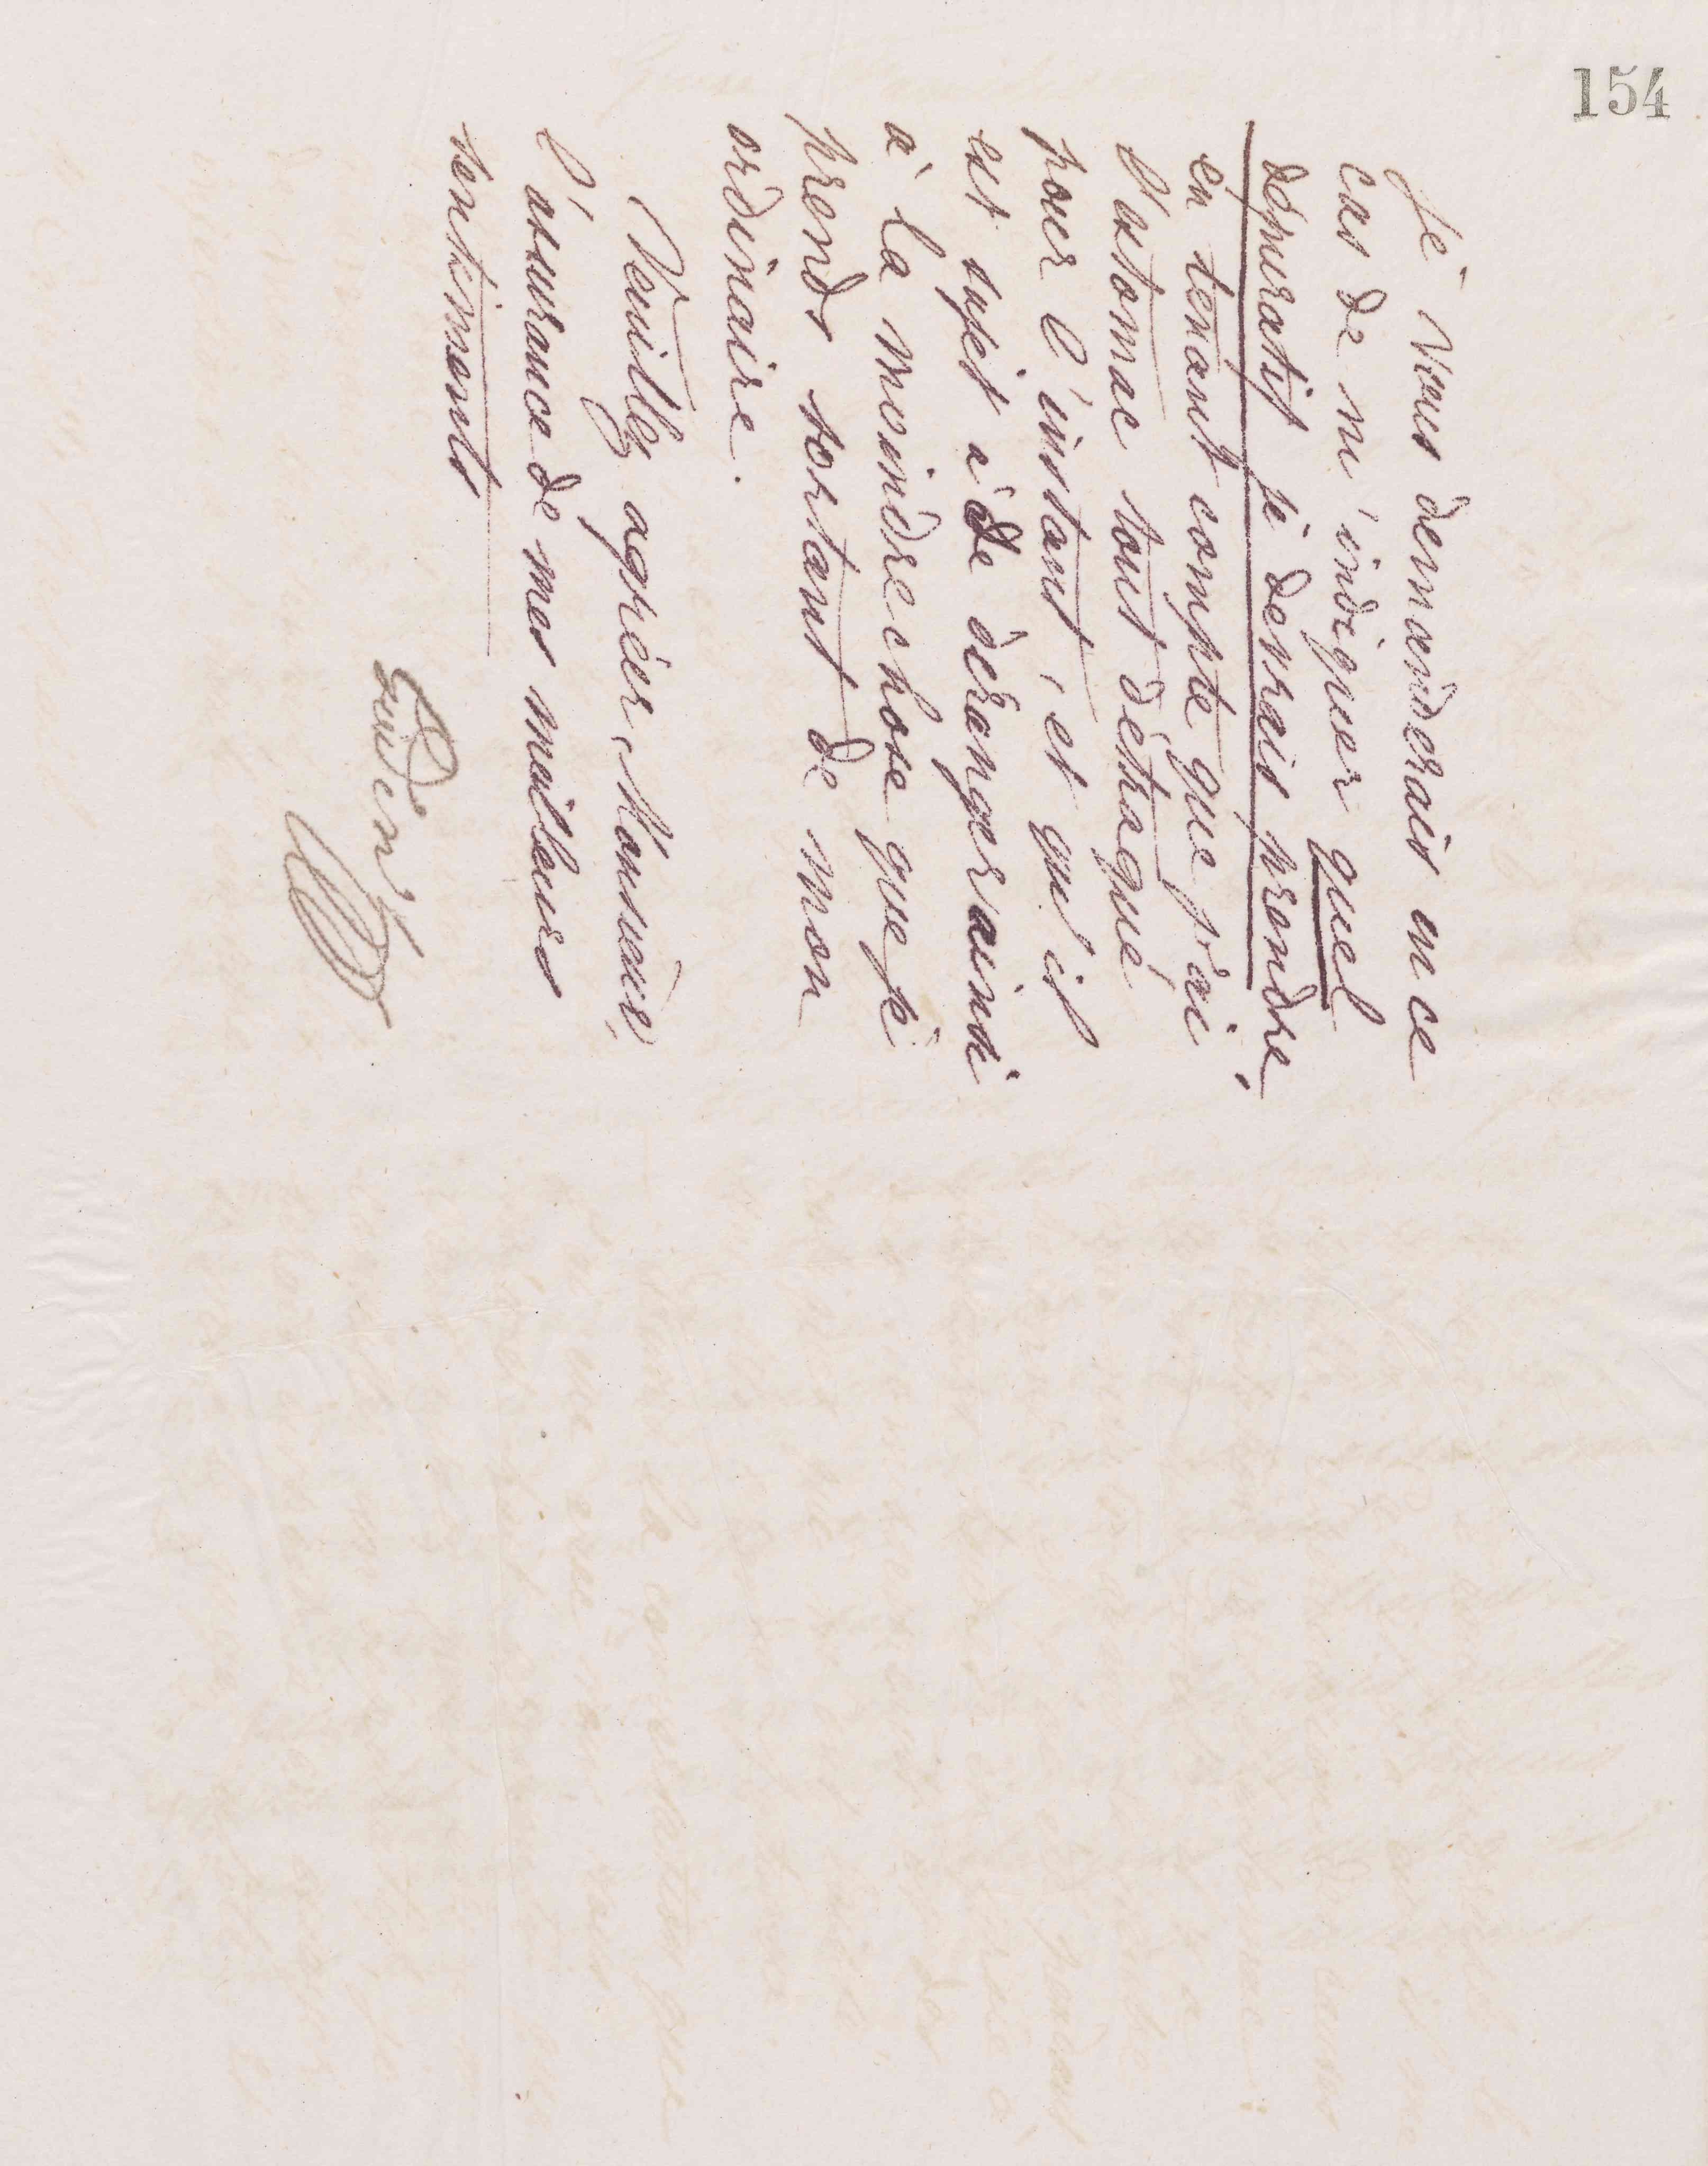 154
Je Vous demanderais en ce
cas de m'indiquer quel
dépuratif je devrais prendre,
en tenant compte que j'ai
l'estomac tout détraqué
pour l'instant, et qu'il
est sujet à de déranger ainsi
à la moindre chose que je
prends sortant de mon
ordinaire.
Veuillez agréer, Monsieur,
l'assurance de mes meilleurs
sentiments
Godin